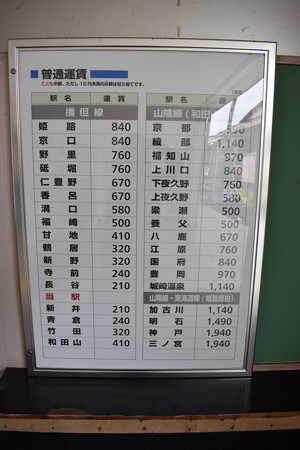 普通運賃
こども半額。ただし10円未満の白数は切り捨てです。
駅名 運賃
播但線
姫路 840
京口 840
野里 760
砥堀 760
仁豊野 670
香呂 670
溝口 580
福崎 500
甘地 410
鶴居 320
新野 320
寺前 240
長谷 210
当駅
新井 210
青倉 240
竹田 320
和田山 410
駅名
山陰線(和田
京都
綾部 1,140
福知山 970
上川口 840
下夜久野 760
上夜久野 580
梁瀬 500
養父 500
八鹿 670
江原 760
国府 840
豊岡 970
城崎温泉 1,140
山陽線・東海道線(姫路経由)
加古川 1,140
明石 1,490
神戸 1,940
三ノ宮 1,940